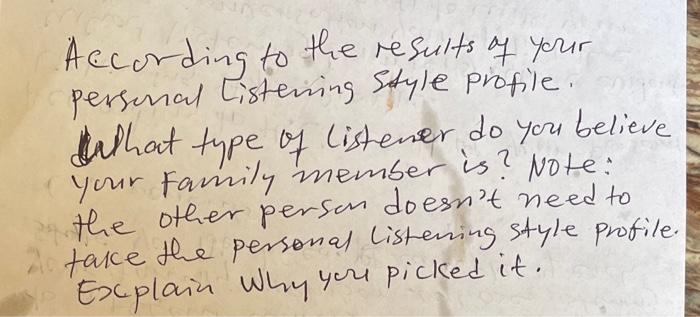 According to the results of your
personal Listening Style profile.
What type of listener do you believe
your Family member is? Note:
the other person doesn't need to
take the personal listening style profile.
Explain why you picked it.